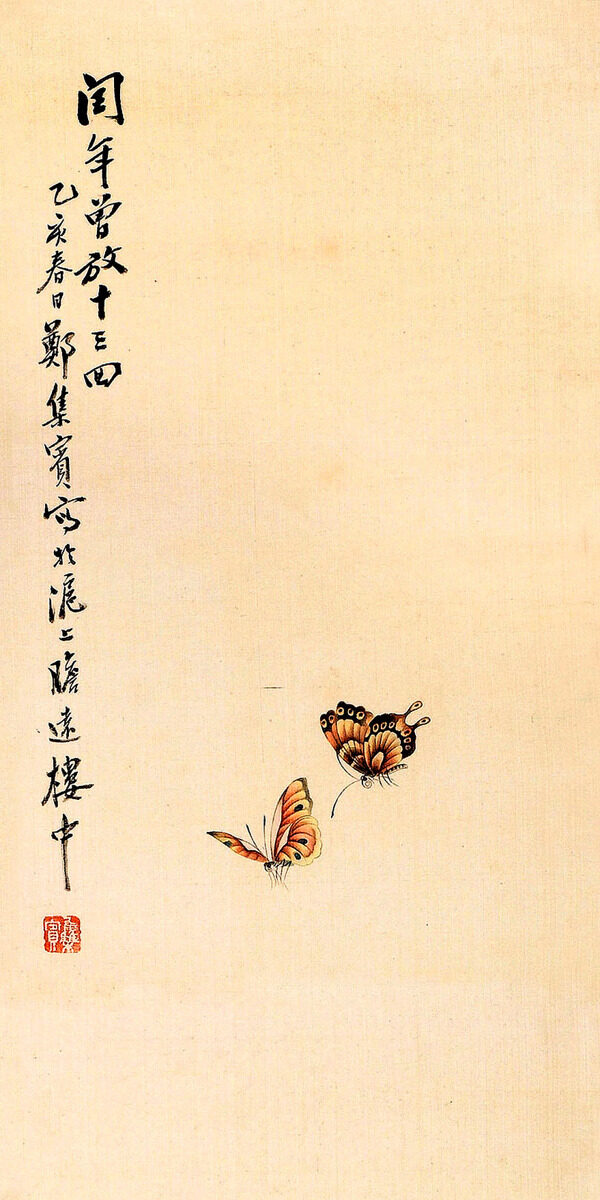 闰年曾放十三四
乙亥春日鄭集賓寫於滬上瞻遠樓中
集賓